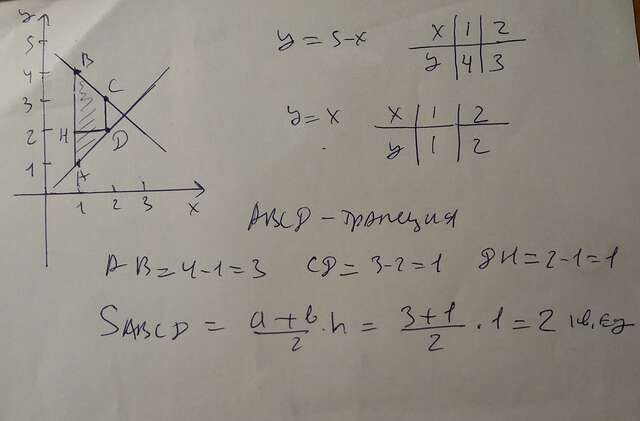 y
5
4
3
2
1
B
C
H
D
A
1 2 3
x
y = 5-x
x 1 2
y 4 3
y = x
x 1 2
y 1 2
ABCD - трапеция
AB = 4-1=3 CD = 3-2=1 DH = 2-1=1
S ABCD = a+b/2 · h = 3+1/2 · 1 = 2 кв. ед